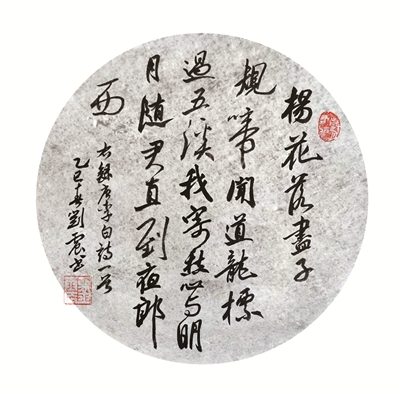 楊花落盡子
規啼聞道龍標
過五溪我寄愁心与明
月随君直到夜郎
西
右錄唐李白詩一首
乙巳春劉震書